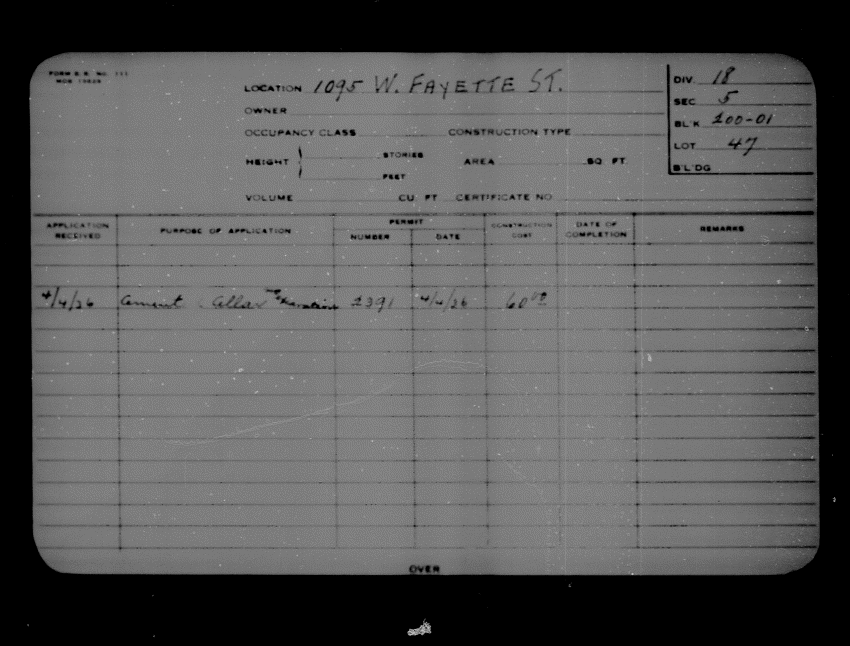 FORM B. R. NO. 111
LOCATION 1095 W. FAYETTE ST.
DIV. 18
OWNER
SEC 5
OCCUPANCY CLASS CONSTRUCTION TYPE
BL'K 200-01
HEIGHT STORIES AREA SQ. FT.
LOT 47
FEET
B'L'DG
VOLUME CU. FT CERTIFICATE NO
APPLICATION RECEIVED PURPOSE OF APPLICATION PERMIT NUMBER DATE CONSTRUCTION COST DATE OF COMPLETION REMARKS
4/4/26 Cement Cellar 2391 4/4/26 60 00
OVER